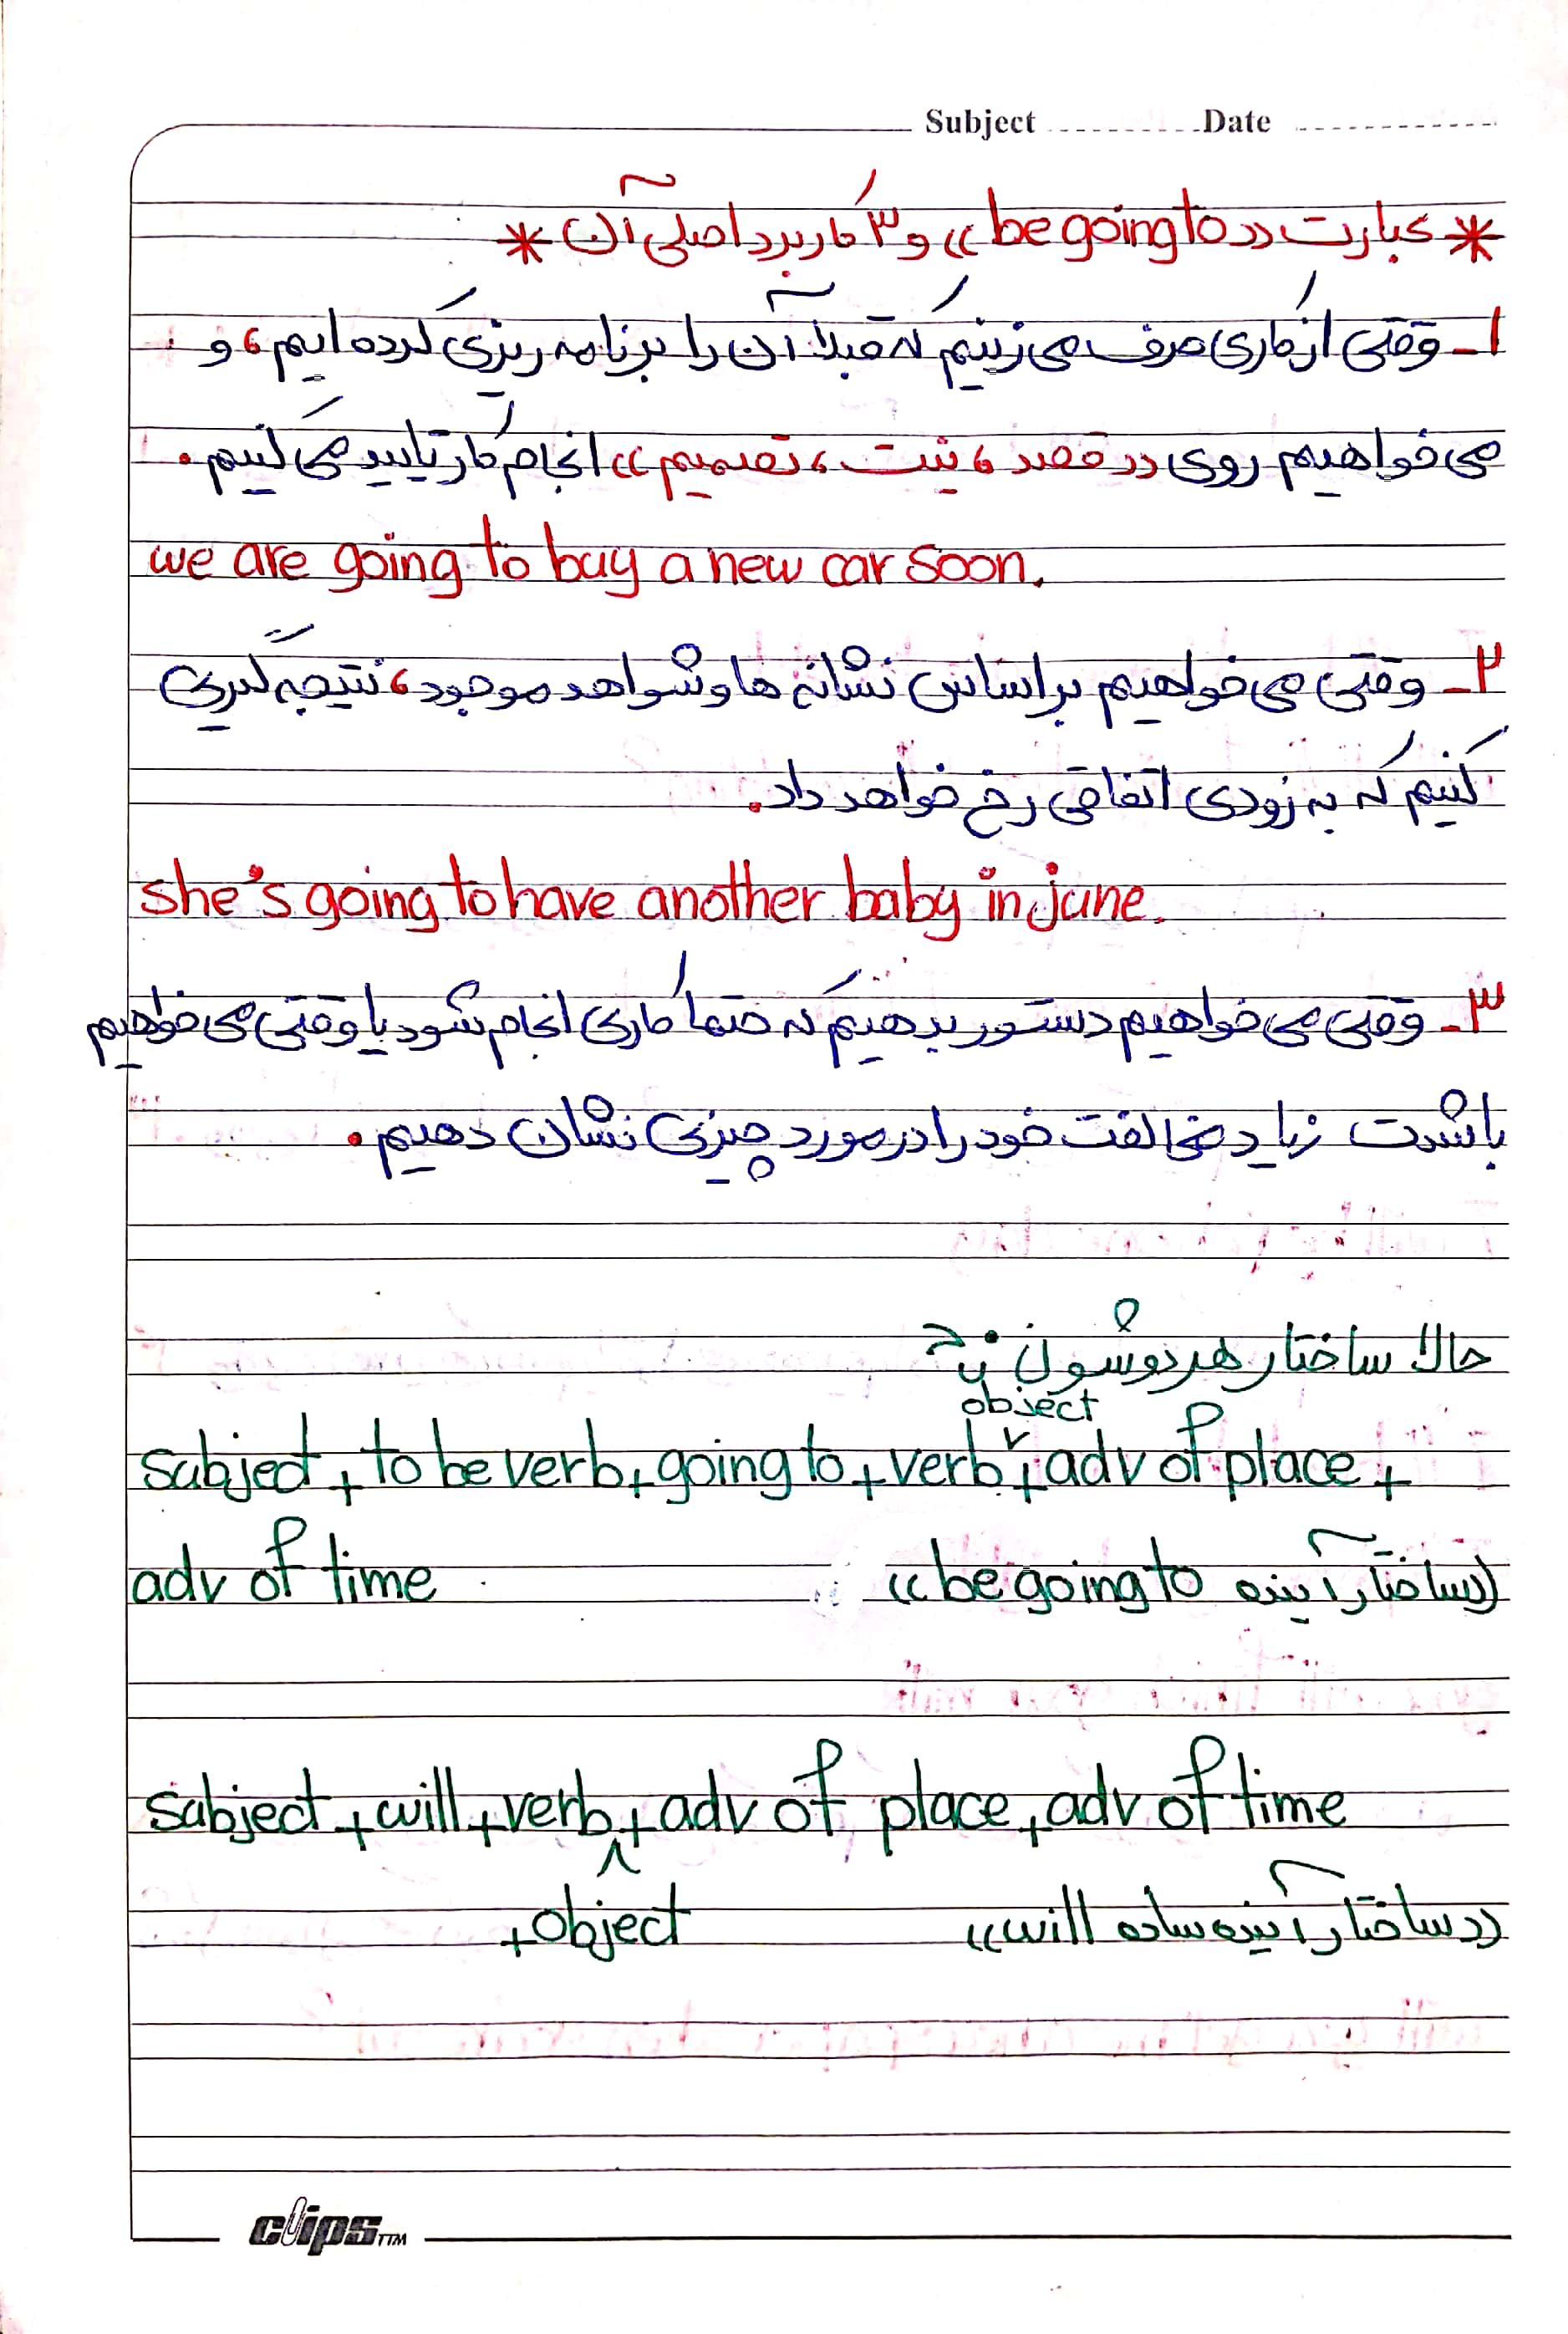 Subject ............ Date ............
* عبارت «be going to» و ۳ کاربرد اصلی آن *
۱- وقتی از کاری حرف می زنیم که قبلا آن را برنامه ریزی کرده ایم، و
می خواهیم روی «قصد، نیت، تصمیم» انجام کار تایید می کنیم.
we are going to buy a new car soon.
۲- وقتی می خواهیم بر اساس نشانه ها و شواهد موجود، نتیجه گیری
کنیم که به زودی اتفاقی رخ خواهد داد.
she's going to have another baby in june.
۳- وقتی می خواهیم دستور بدهیم که حتما کاری انجام بشود یا وقتی می خواهیم
با شدت زیاد مخالفت خود را در مورد چیزی نشان دهیم.
حالا ساختار هر دوشون
object
subject + to be verb + going to + verb + adv of place +
adv of time «ساختار آینده be going to»
subject + will + verb + adv of place + adv of time
+ object «ساختار آینده ساده will»
clips TTM